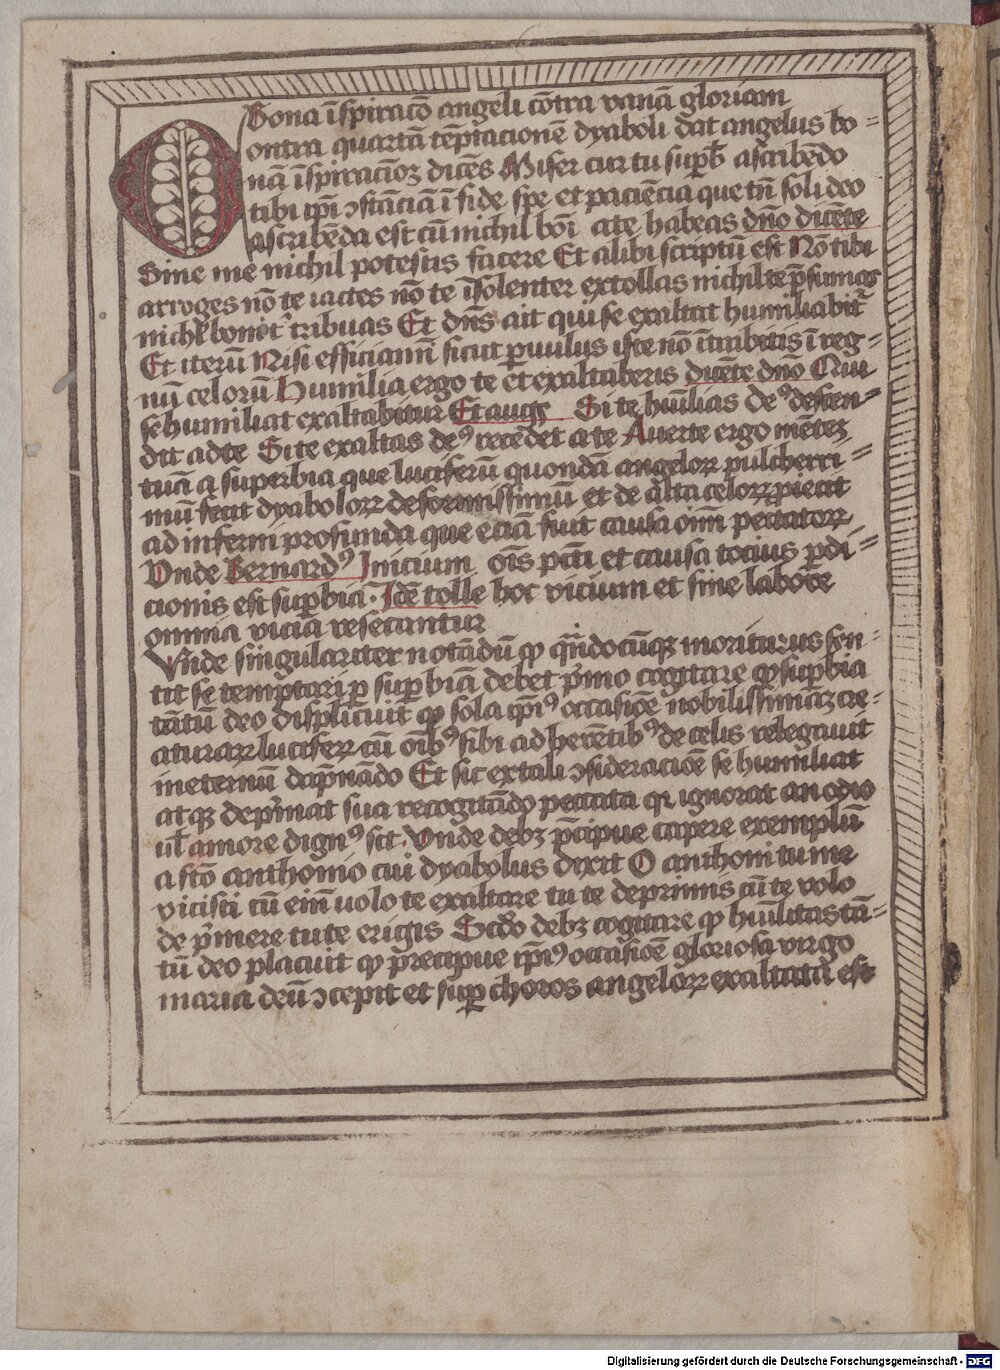 Bona īspiracō angeli cōtra vanā gloriam
Contra quartā tēptacionē dyaboli dat angelus bo=
nā īspiracioꝫ dicēs Miser cur tu supbꝰ ascribēdo
tibi ip̄i ꝯstāciā ī fide spe et paciēcia que tn̄ soli deo
ascribēda est cū nichil boī a te habeas dn̄o dicēte
Sine me nichil potestis facere Et alibi scriptū est Nō tibi
arroges nō te iactes nō te īsolenter extollas nichil te p̄sumas
nichil boni tribuas Et dn̄s ait qui se exaltat humiliabit᷑
Et iterū Nisi efficiamī sicut puulus iste nō ītrabitis ī reg=
nū celorū Humilia ergo te et exaltaberis dicēte dn̄o Qui
se humiliat exaltabitur Et augꝫ Si te hūilias deꝰ descen=
dit ad te Si te exaltas deꝰ recedet a te Auerte ergo mēteꝫ
tuā a superbia que luciferū quondā angeloꝝ pulcherri=
mū fecit dyaboloꝝ deformissimū et de alta celoꝝ piecit
ad inferni profunda que eciā fuit causa oīm peccatoꝝ
Unde Bernardꝰ Inicium oīs pcc̄ti et causa tocius pdi=
cionis est supbia · Idē tolle hoc vicium et sine labore
omnia vicia resecantur
Vnde singulariter notādū ꝙ qn̄docūqꝫ moriturus sen=
tit se temptari p supbiā debet pͥmo cogitare ꝙ supbia
tātū deo displicuit ꝙ sola ip̄iꝰ occasiōe nobilissimāꝫ cre=
aturaꝝ luciferꝝ cū oībꝰ sibi adherētibꝰ de celis relegauit
in eternū dāpnādo Et sic ex tali ꝯsideraciōe se humiliat
atqꝫ depͥmat sua recogitādo peccata qꝛ ignorat an odio
ul̄ amore dignꝰ sit. Vnde debꝫ p̄cipue capere exemplū
a sc̄o anthonio cui dyabolus dixit O anthoni tu me
vicisti cū eim̄ uolo te exaltare tu te deprimis cū te volo
depͥmere tu te erigis Scd̄o debꝫ cogitare ꝙ hūilitas tā=
tū deo placuit ꝙ precipue ip̄iꝰ occasiōe gloriosa virgo
maria deū ꝯcepit et sup choros angeloꝝ exaltata est
Digitalisierung gefördert durch die Deutsche Forschungsgemeinschaft - DFG